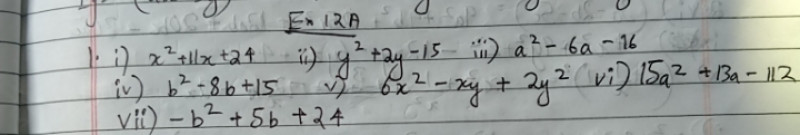 Ex 12A
1. i) x² + 11x + 24 ii) y² + 2y - 15 iii) a² - 6a - 16
iv) b² - 8b + 15 v) 6x² - xy + 2y² vi) 15a² + 13a - 112
vii) - b² + 5b + 24